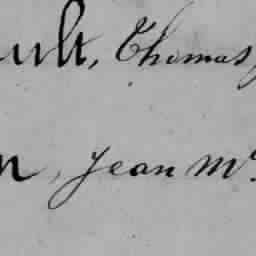 ult, Thomas
n, Jean M